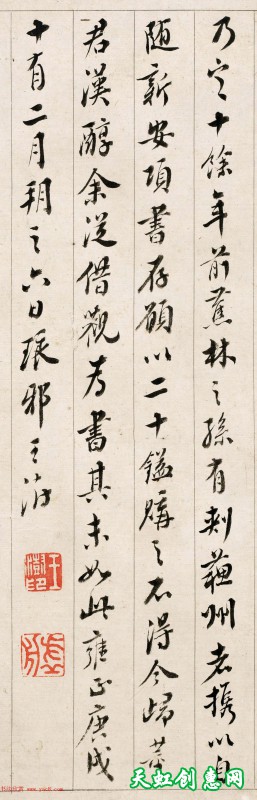 乃定十餘年前蕉林之孫有刺蘇州者攜以自
随新安項書存願以二十鎰購之不得今歸
君漢醇余從借觀為書其末如此雍正庚戌
十有二月朔之六日琅邪王澍
王澍印
天虹创意网